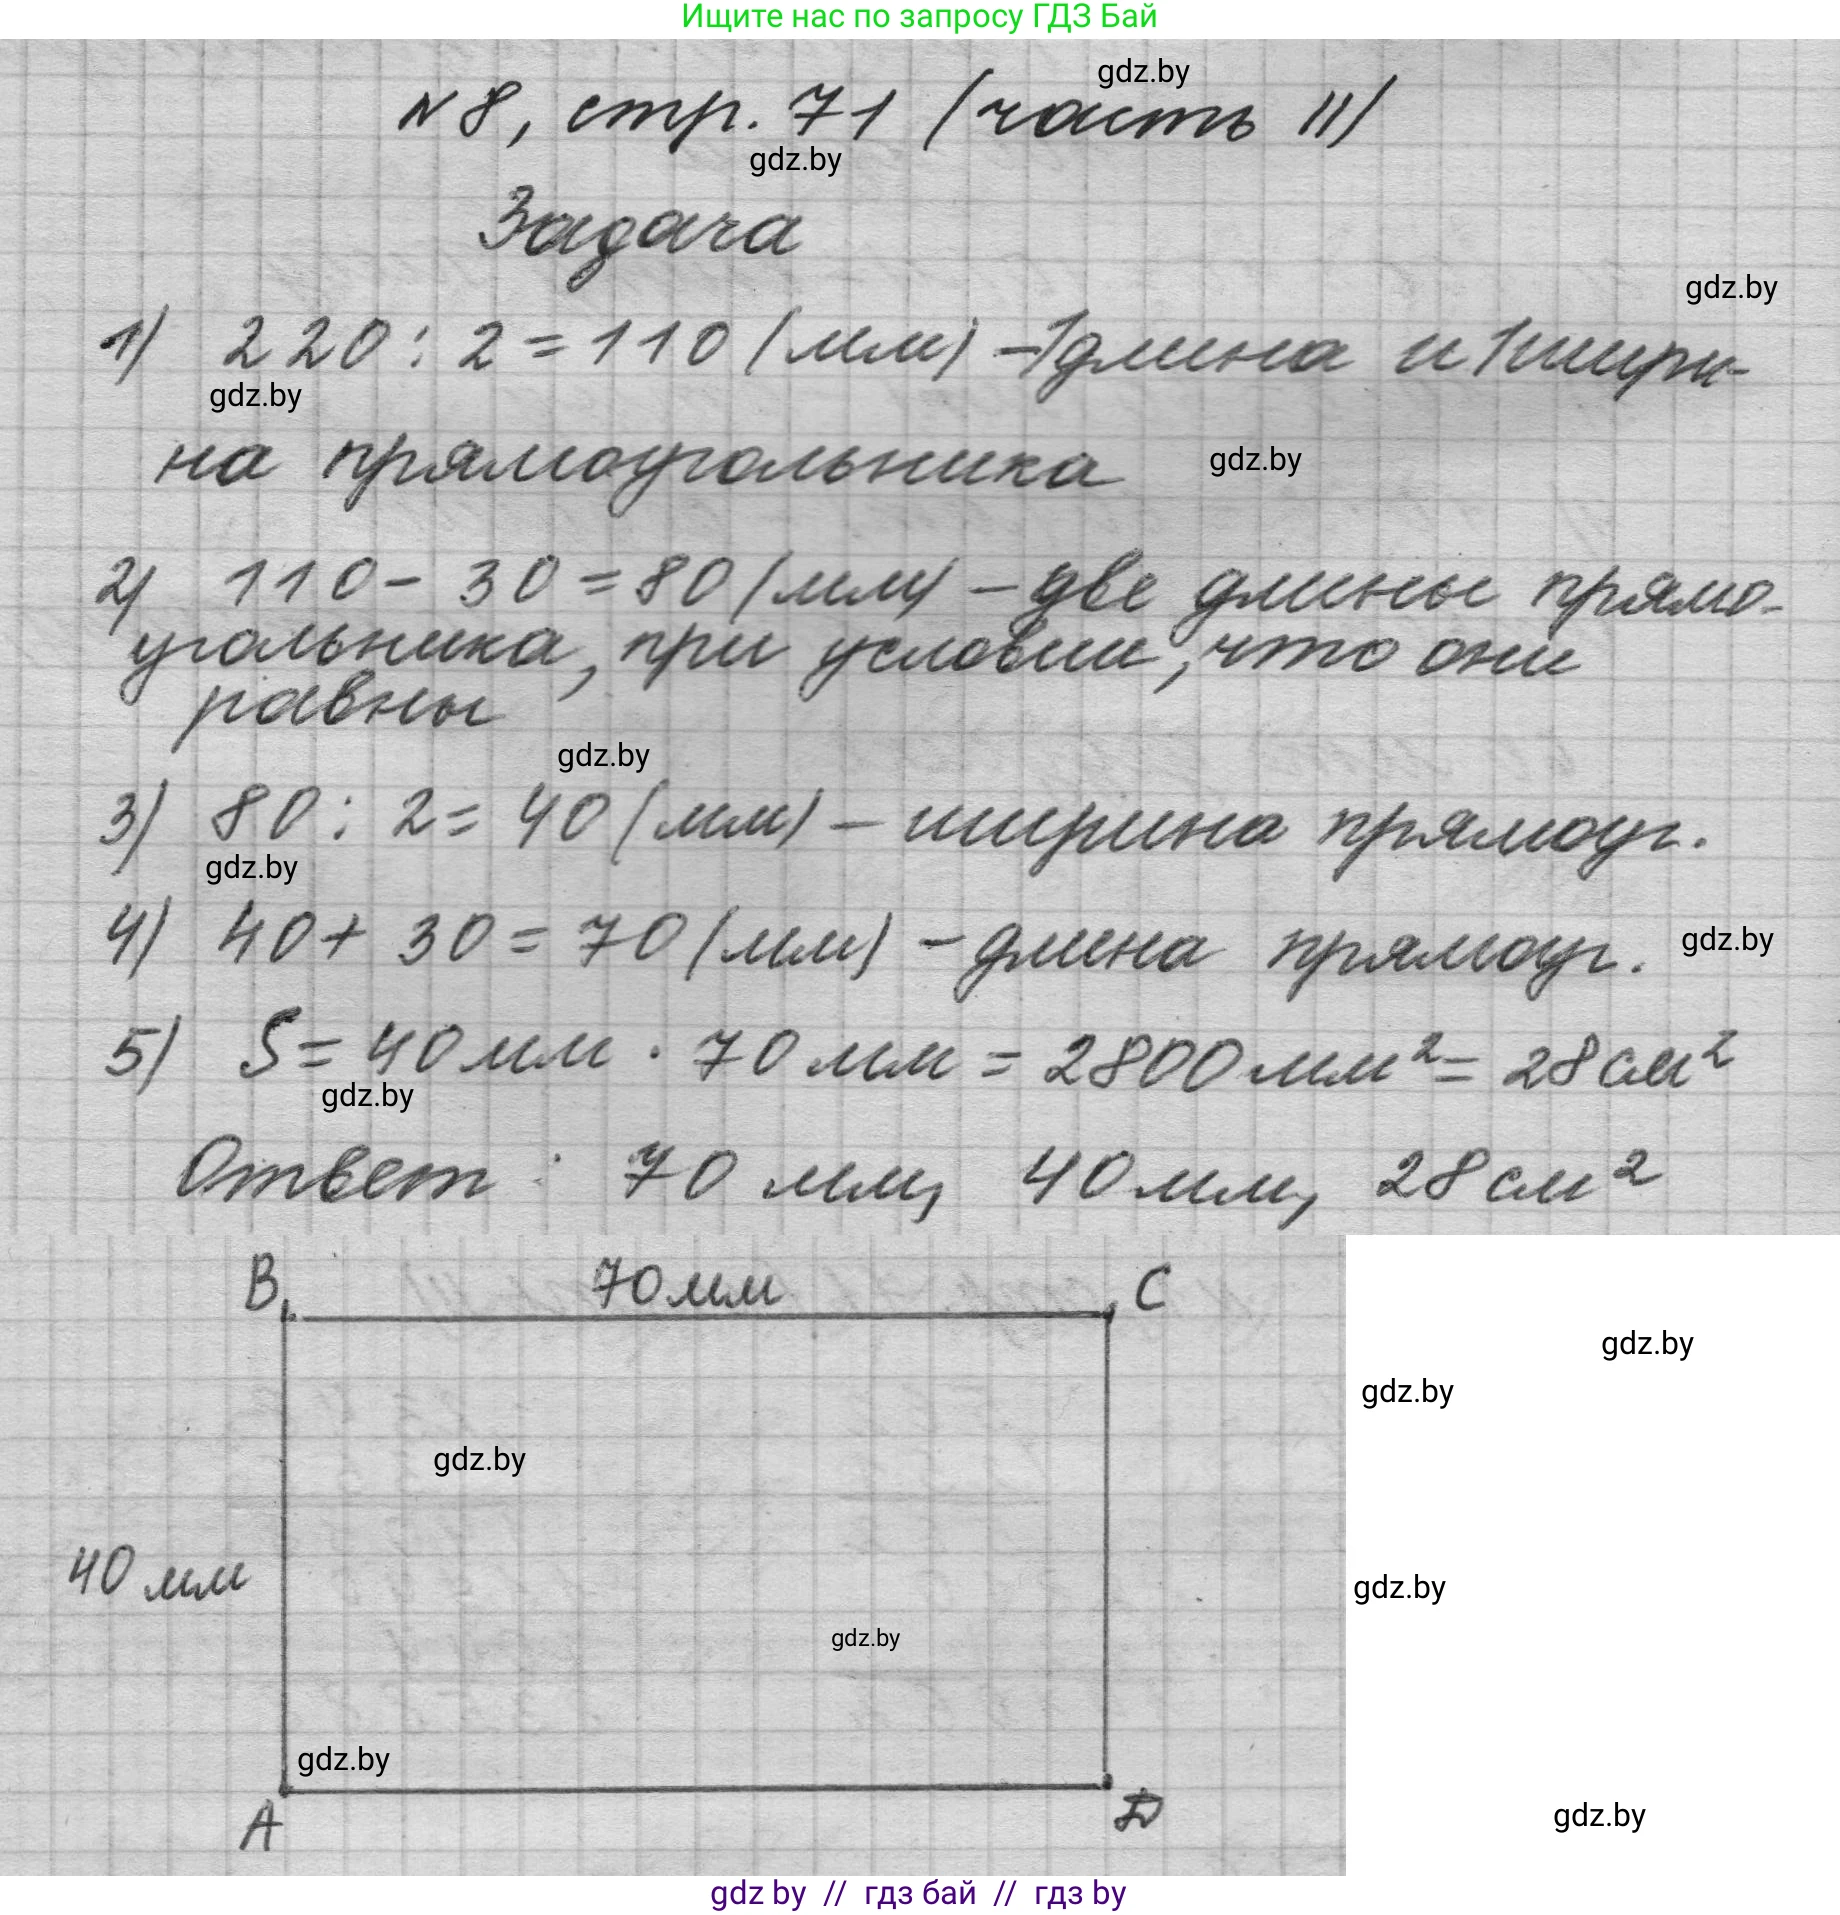 Ищите нас по запросу ГДЗ Бай
gdz.by
№8, стр. 71 (часть II)
gdz.by
Задача
gdz.by
1) 220 : 2 = 110 (мм) - 1 длина и 1 шири-
gdz.by
на прямоугольника gdz.by
2) 110 - 30 = 80 (мм) - две длины прямо-
угольника, при условии, что они
равны
gdz.by
3) 80 : 2 = 40 (мм) - ширина прямоуг.
gdz.by
4) 40 + 30 = 70 (мм) - длина прямоуг. gdz.by
5) S = 40 мм · 70 мм = 2800 мм² = 28 см²
gdz.by
Ответ : 70 мм, 40 мм, 28 см²
B 70 мм C
gdz.by
gdz.by
gdz.by
40 мм gdz.by
gdz.by
gdz.by
A D gdz.by
gdz by // гдз бай // гдз by